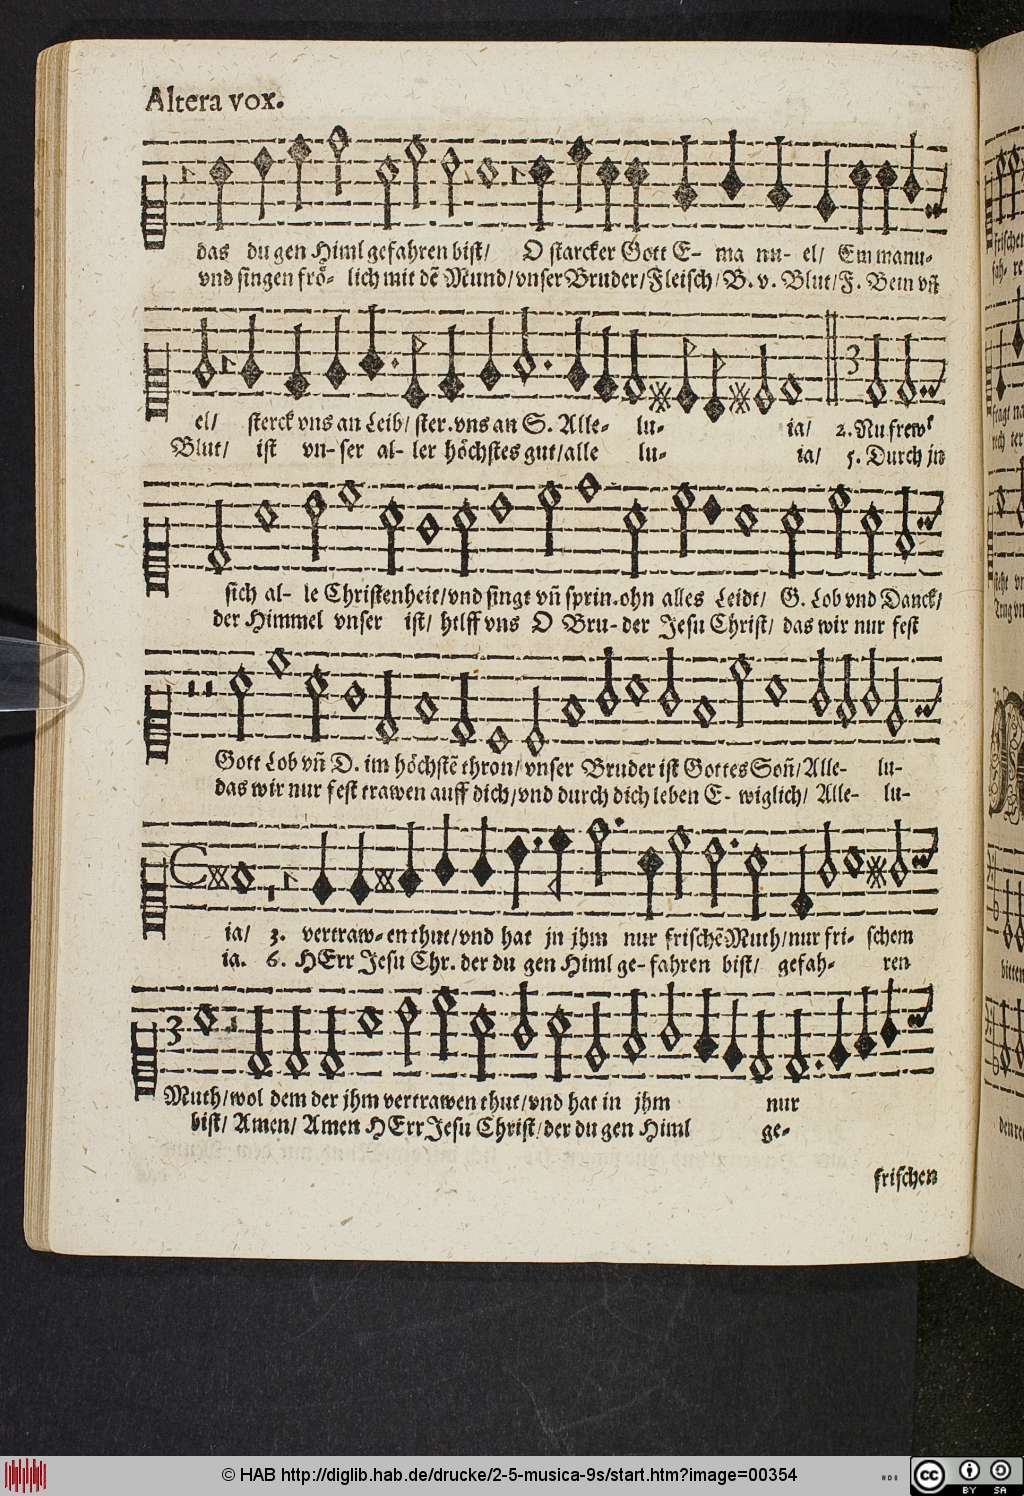 Altera vox.
das du gen Himl gefahren bist/ O starcker Gott E- ma nu- el/ Em manu-
vnd singen frö- lich mit dē Mund/vnser Bruder/Fleisch/B. v. Blut/F. Bein vñ
el/ sterck vns an Leib/ ster. vns an S. Alle- lu- ia/ 2. Nu frewt
Blut/ ist vn- ser al- ler höchstes gut/alle lu- ia/ 5. Durch jn
sich al- le Christenheit/vnd singt vñ sprin. ohn alles Leidt/ G. Lob vnd Danck/
der Himmel vnser ist/ hilff vns O Bru- der Jesu Christ/ das wir nur fest
Gott Lob vñ D. im höchstē thron/vnser Bruder ist Gottes Soñ/Alle- lu-
das wir nur fest trawen auff dich/vnd durch dich leben E- wiglich/ Alle- lu-
ia/ 3. vertraw- en thut/vnd hat jn jhm nur frischē Muth/nur fri- schem
ia. 6. HErr Jesu Chr. der du gen Himl ge- fahren bist/ gefah- ren
Muth/wol dem der jhm vertrawen thut/vnd hat in jhm nur
bist/ Amen/ Amen HErr Jesu Christ/der du gen Himl ge-
frischen
© HAB http://diglib.hab.de/drucke/2-5-musica-9s/start.htm?image=00354
cc BY SA